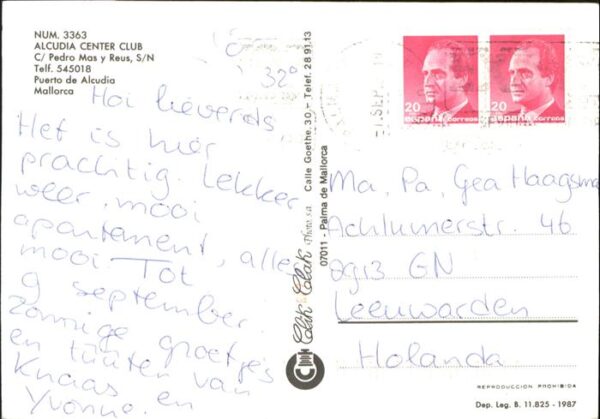 NUM. 3363
ALCUDIA CENTER CLUB
C/ Pedro Mas y Reus, S/N
Telf. 545018
Puerto de Alcudia
Mallorca
32°
Hoi lieverds,
Het is hier
prachtig. Lekker
weer, mooi
apartement, alles
mooi. Tot
9 september.
Zonnige groetjes
en tuuten van
Knaas en
Yvonne.
Clik Clak Photo, s.a. Calle Goethe, 30 - Telef. 28 91 13
07011 - Palma de Mallorca
20
españa correos
20
españa correos
SEP.
Ma, Pa, Gea Haagsma
Achlumerstr. 46
8913 GN
Leeuwarden
Holanda
REPRODUCCION PROHIBIDA
Dep. Leg. B. 11.825 - 1987